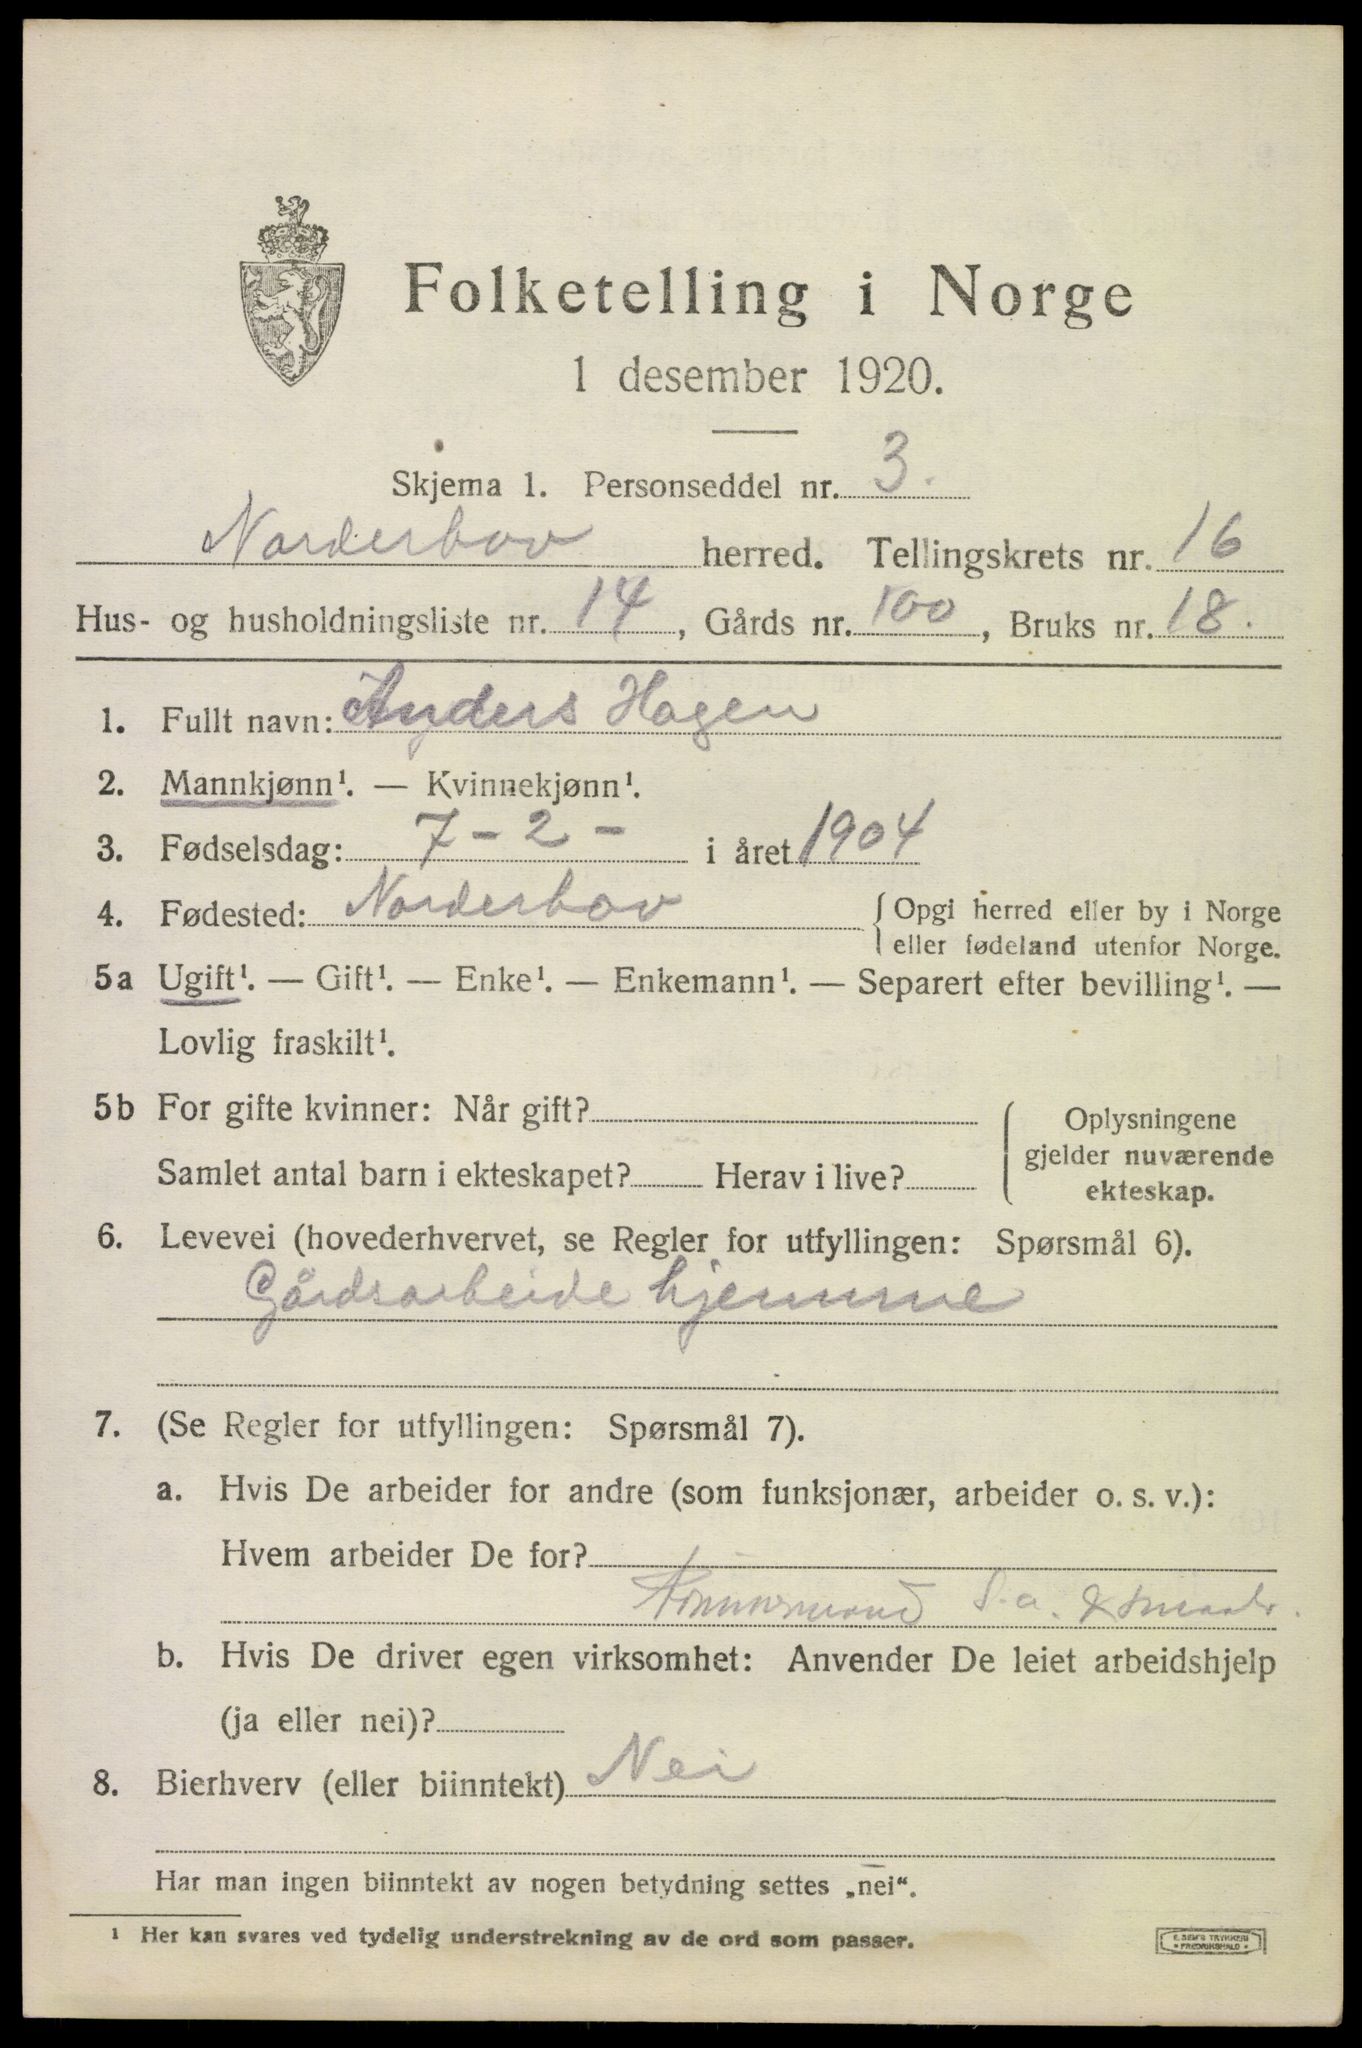 Folketelling i Norge
1 desember 1920.
Skjema 1. Personseddel nr. 3.
Norderhov herred. Tellingskrets nr. 16
Hus- og husholdningsliste nr. 14, Gårds nr. 100, Bruks nr. 18.
1. Fullt navn: Anders Hagen
2. Mannkjønn¹. — Kvinnekjønn¹.
3. Fødselsdag: 7 - 2 - i året 1904
4. Fødested: Norderhov {Opgi herred eller by i Norge
eller fødeland utenfor Norge.
5a Ugift¹. — Gift¹. — Enke¹. — Enkemann¹. — Separert efter bevilling¹. —
Lovlig fraskilt¹.
5b For gifte kvinner: Når gift?
Samlet antal barn i ekteskapet? Herav i live?
Oplysningene
gjelder nuværende
ekteskap.
6. Levevei (hovederhvervet, se Regler for utfyllingen: Spørsmål 6).
Gårdsarbeide hjemme
7. (Se Regler for utfyllingen: Spørsmål 7).
a. Hvis De arbeider for andre (som funksjonær, arbeider o. s. v.):
Hvem arbeider De for?
S.a.
b. Hvis De driver egen virksomhet: Anvender De leiet arbeidshjelp
(ja eller nei)?
8. Bierhverv (eller biinntekt) Nei
Har man ingen biinntekt av nogen betydning settes „nei“.
¹ Her kan svares ved tydelig understrekning av de ord som passer.
E. SEM'S TRYKKERI
• FREDRIKSHALD •